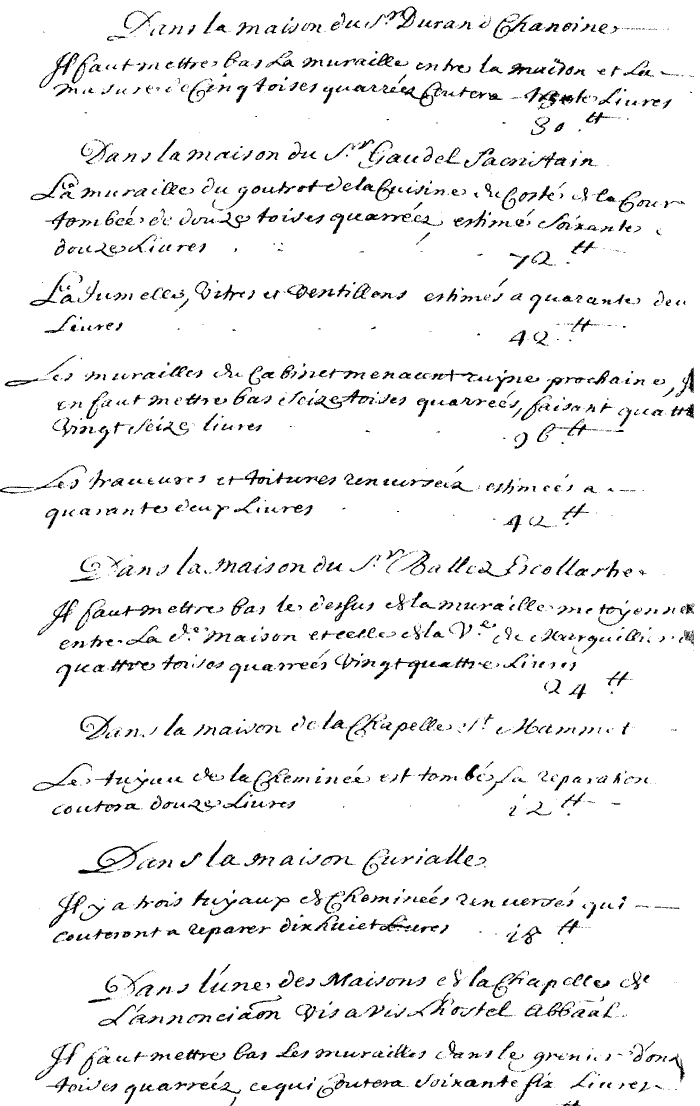 Dans la maison du Sr Durand Chanoine
Il faut mettre bas La muraille entre la maison et La
masure de Cinq toises quarrées Coutera trente Livres
30 tt
Dans la maison du Sr Gaudel Sacristain
La muraille du goutrot de la Cuisine du Costé de la Cour
tombée de douze toises quarrées estimé Soixante
douze Livres
72 tt
La Jumelle, Vitres et Ventillons estimés a quarante deu
Livres
42 tt
Les murailles du Cabinet menacent ruyne prochaine, Il
en faut mettre bas Seize toises quarrées, faisant quattre
Vingt Seize livres
96 tt
Les traveures et toitures renversées estimées a
quarante deux Livres
42 tt
Dans la maison du Sr Ballez Escollastre
Il faut mettre bas le dessus de la muraille metoyenne
entre La de maison et celle de la Ve de Marguillier
quattre toises quarreés Vingt quattre Livres
24 tt
Dans la maison de la Chapelle St Mammet
Le tuyau de la Cheminée est tombé, sa reparation
coutera douze Livres
12 tt
Dans la maison Curialle
Il y a trois tuyaux de Cheminées renversés qui
couteront a reparer dix huict Livres
18 tt
Dans l'une des Maisons de la Chapelle de
L'annonciaon Vis a Vis L'hostel Abbaal
Il faut mettre bas Les murailles dans le grenier d'onz
toises quarrées, ce qui Coutera Soixante Six Livres